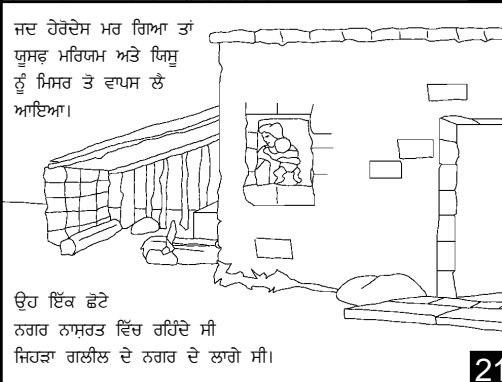 ਜਦ ਹੇਰੋਦੇਸ ਮਰ ਗਿਆ ਤਾਂ
ਯੂਸਫ਼ ਮਰਿਯਮ ਅਤੇ ਯਿਸੂ
ਨੂੰ ਮਿਸਰ ਤੋ ਵਾਪਸ ਲੈ
ਆਇਆ।
ਉਹ ਇੱਕ ਛੋਟੇ
ਨਗਰ ਨਾਸ਼ਰਤ ਵਿੱਚ ਰਹਿੰਦੇ ਸੀ
ਜਿਹੜਾ ਗਲੀਲ ਦੇ ਨਗਰ ਦੇ ਲਾਗੇ ਸੀ।
21